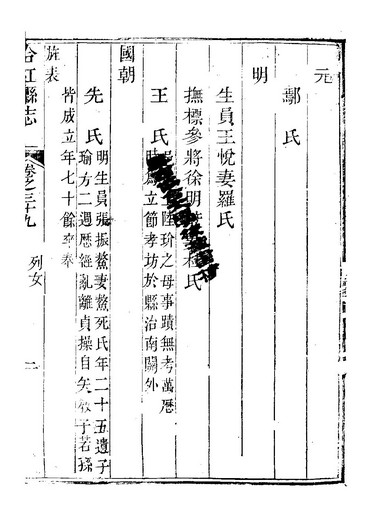 元
鄢氏
明
生員王悅妻羅氏
撫標參將徐明 氏
王氏 陞玠之母事蹟無考萬歷
立節孝坊於縣治南關外
國朝
先氏 明生員張振鰲妻鰲死氏年二十五遺子
瑜方二週歷經亂離貞操自矢教子若孫
皆成立年七十餘卒奉
旌表
合江縣志
卷之三十九
列女